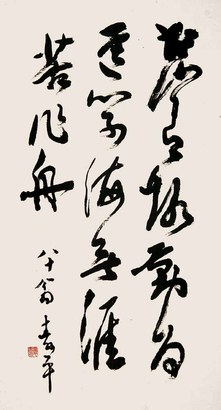 書山有路勤为
径学海無涯
苦作舟
八十翁